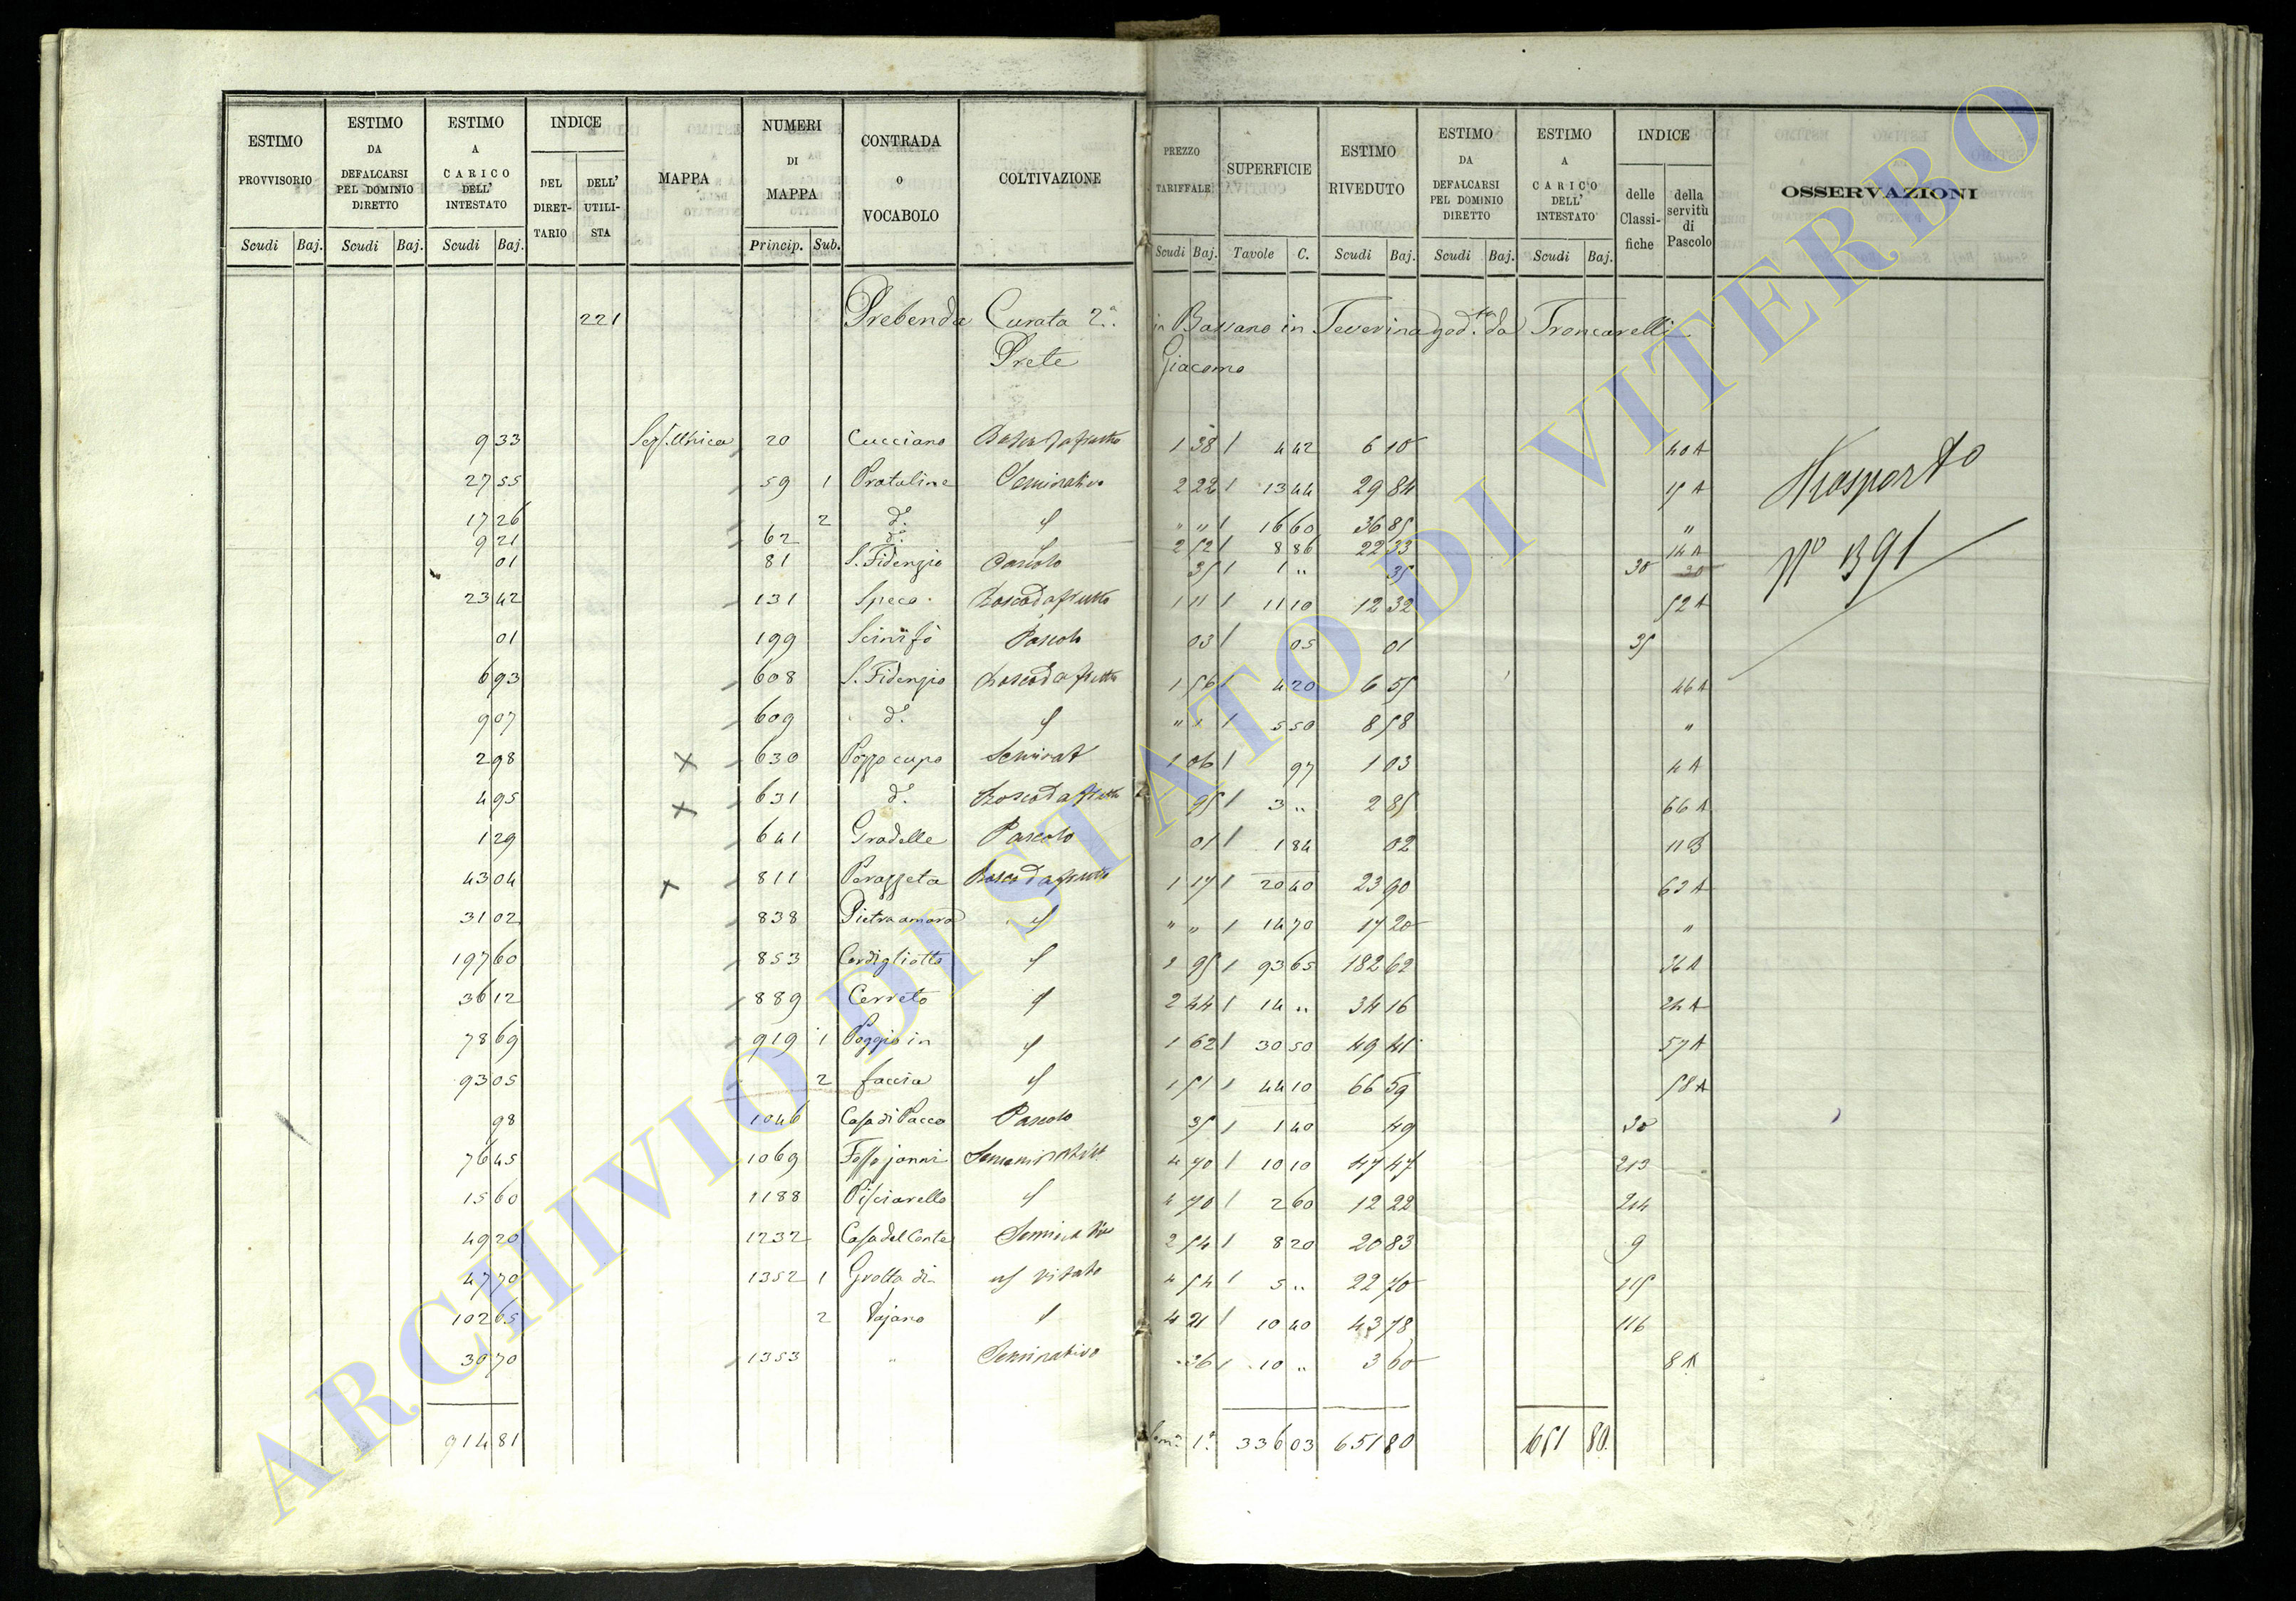 ESTIMO PROVVISORIO | ESTIMO DA DEFALCARSI PEL DOMINIO DIRETTO | ESTIMO A CARICO DELL' INTESTATO | INDICE | DEL DIRET-TARIO | DELL' UTILI-STA | MAPPA | NUMERI DI MAPPA | CONTRADA o VOCABOLO | COLTIVAZIONE | PREZZO TARIFFALE | SUPERFICIE | ESTIMO RIVEDUTO | ESTIMO DA DEFALCARSI PEL DOMINIO DIRETTO | ESTIMO A CARICO DELL' INTESTATO | INDICE | delle Classi-fiche | della servitù di Pascolo | OSSERVAZIONI
Scudi Baj. | Scudi Baj. | Scudi Baj. | Princip. Sub. | Scudi Baj. | Tavole C. | Scudi Baj. | Scudi Baj. | Scudi Baj.
221 Prebenda Curata 2ª. in Bassano in Teverina god.ta da Troncarelli
Prete Giacomo
9 33 Sez. Unica 20 Cucciano Bosco da frutto 1 38 / 4 42 6 10 40 A
27 55 59 1 Prataline Seminativo 2 22 / 13 44 29 84 17 A
17 26 2 d.° " " / 16 60 36 85 "
9 21 62 d.° 2 52 / 8 86 22 33 14 A
01 81 S. Fidenzio Pascolo 35 / 1 " 35 30
23 42 131 Speco Bosco da frutto 1 11 / 11 10 12 32 52 A
01 199 Pascolo 03 / 05 01 35
6 93 608 S. Fidenzio Bosco da frutto 1 56 / 4 20 6 55 46 A
9 07 609 d.° " " / 5 50 8 58 "
2 98 630 Pozzo cupo Seminat 1 06 / 97 1 03 4 A
4 95 631 d.° Bosco da frutto 95 / 3 " 2 85 66 A
1 29 641 Gradelle Pascolo 01 / 1 84 02 11 B
43 04 811 Perazzeta Bosco da frutto 1 17 / 20 40 23 90 63 A
31 02 838 Pietra amara " " / 14 70 17 20 "
197 60 853 Cordigliotto 1 95 / 93 65 182 62 36 A
36 12 889 Cerreto 2 44 / 14 " 34 16 24 A
78 69 919 1 Poggio in 1 62 / 30 50 49 41 57 A
93 05 2 faccia 1 51 / 44 10 66 59 58 A
98 1046 Casa di Pacco Pascolo 35 / 1 40 49 30
76 45 1069 Fosso janni Semominativo 4 70 / 10 10 47 47 213
15 60 1188 Pisciarello 4 70 / 2 60 12 22 214
49 20 1232 Casa del Conte Seminativo 2 54 / 8 20 20 83 9
47 70 1352 1 Grotta di vitato 4 54 / 5 " 22 70 115
102 65 2 Vajano 4 21 / 10 40 43 78 116
30 70 1353 " Seminativo 36 / 10 " 3 60 8 A
914 81 Som.ª 1ª. 336 03 651 80 651 80
Trasporto
N° 391
ARCHIVIO DI STATO DI VITERBO